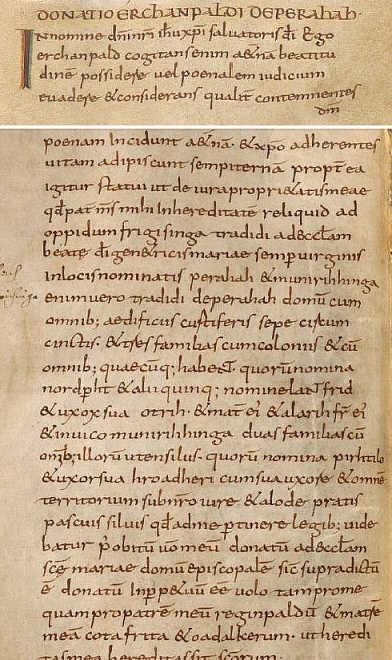 DONATIO ERCHANPALDI DE PERAHAH.
In nomine dn̄i nr̄i ihū xpī salvatoris dī &go
erchanpald cogitans enim a&na beatitu
dinē possidere vel poenalem iudicium
evadere & considerans qualit contemnentes
dm̄
poenam incidunt a&nā. & xpo adherentes
vitam adipiscunt sempiternā propt ea
igitur statui ut de iura propri&atis meae
qd pat ms mihi in hereditatē reliquid ad
oppidum frigisinga tradidi ad eccl̄am
beate dī genetricis mariae semp virginis
in locis nominatis perahah & munirihhinga
enim vero tradidi de perahah domū cum
omnib; aedificiis sepe circum
cinctis. & familias cum coloniis & cū
omnib; quaecuq; hab& quorū nomina
nordp̄ht & alii quinq; nomine lantfrid
& uxor sua otrih. & mat ei & alarih fr̄ ei
& in vico munirihhinga duas familias cū
omīb; illorū utensilus. quorū nomina pirhtilo
& uxor sua hroadheri cum sua uxore & omnē
territorium sub nr̄o iure & alode pratis
pascuis silvis qd̄ ad me ptinere legib; vide
batur p obitū donatū ad eccl̄am
scē mariae domū episcopalē sic̄ supra dictū
ē donatū ee volo tam pro me
quam pro patrē meū reginpaldū & matrē
meā cotafritta & oadalkerum. ut heredi
tas mea hereditas sit scōrum.